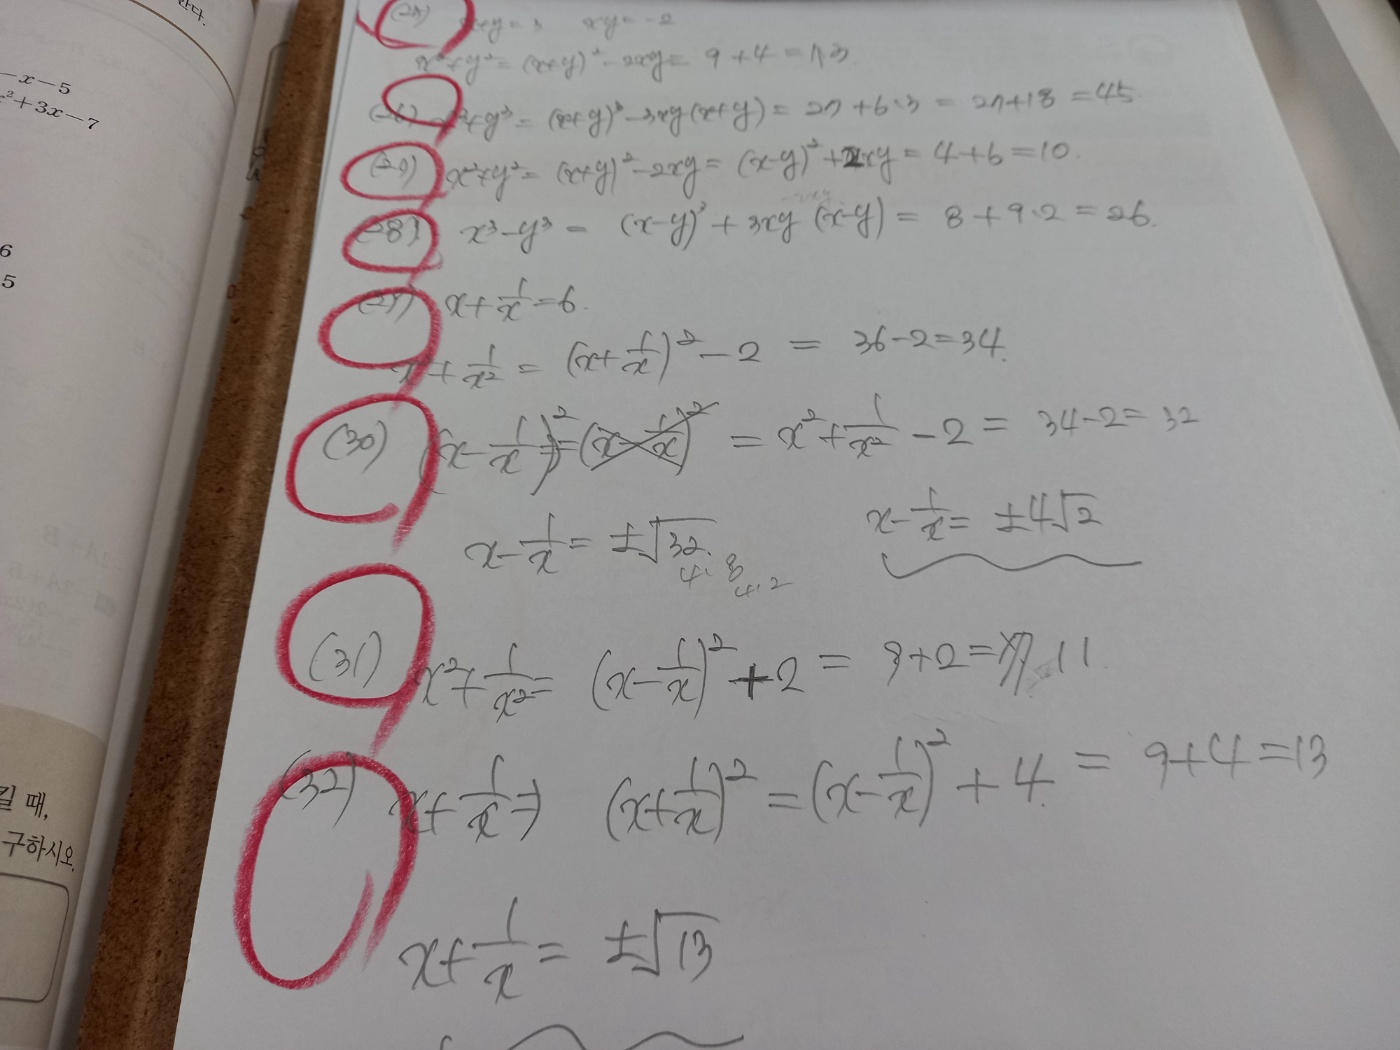 한다.
-x-5
x²+3x-7
6
5
킬 때,
구하시오.
(25) x+y=3 xy=-2
x²+y²=(x+y)²-2xy=9+4=13
(26) x³+y³=(x+y)³-3xy(x+y)=27+6·3=27+18=45
(27) x²+y²=(x+y)²-2xy=(x-y)²+2xy=4+6=10.
(28) x³-y³=(x-y)³+3xy(x-y)=8+9·2=26.
(29) x+1/x=6.
x²+1/x²=(x+1/x)²-2=36-2=34.
(30) (x-1/x)²=(x-1/x)²=x²+1/x²-2=34-2=32
x-1/x=±√32. x-1/x=±4√2
4·8
4·2
(31) x²+1/x²=(x-1/x)²+2=9+2=11
(32) x+1/x=) (x+1/x)²=(x-1/x)²+4=9+4=13
x+1/x=±√13